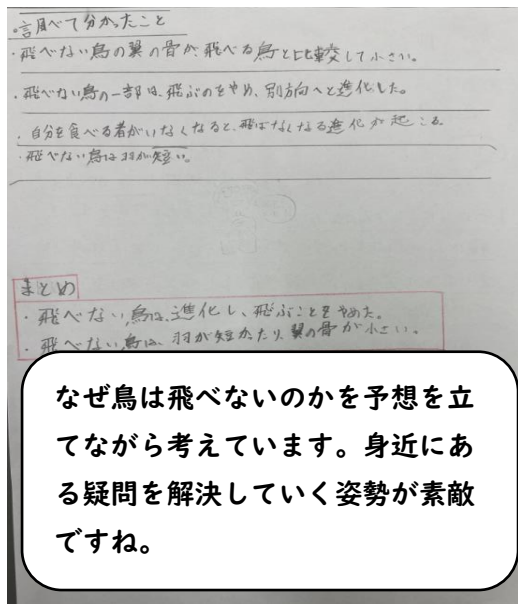 ・調べて分かったこと
・飛べない鳥の翼の骨が飛べる鳥と比較して小さい。
・飛べない鳥の一部は、飛ぶのをやめ、別方向へと進化した。
・自分を食べる者がいなくなると、飛ばなくなる進化が起こる。
・飛べない鳥は羽が短い。
まとめ
・飛べない鳥は、進化し、飛ぶことをやめた。
・飛べない鳥は、羽が短かたり、翼の骨が小さい。
なぜ鳥は飛べないのかを予想を立
てながら考えています。身近にあ
る疑問を解決していく姿勢が素敵
ですね。